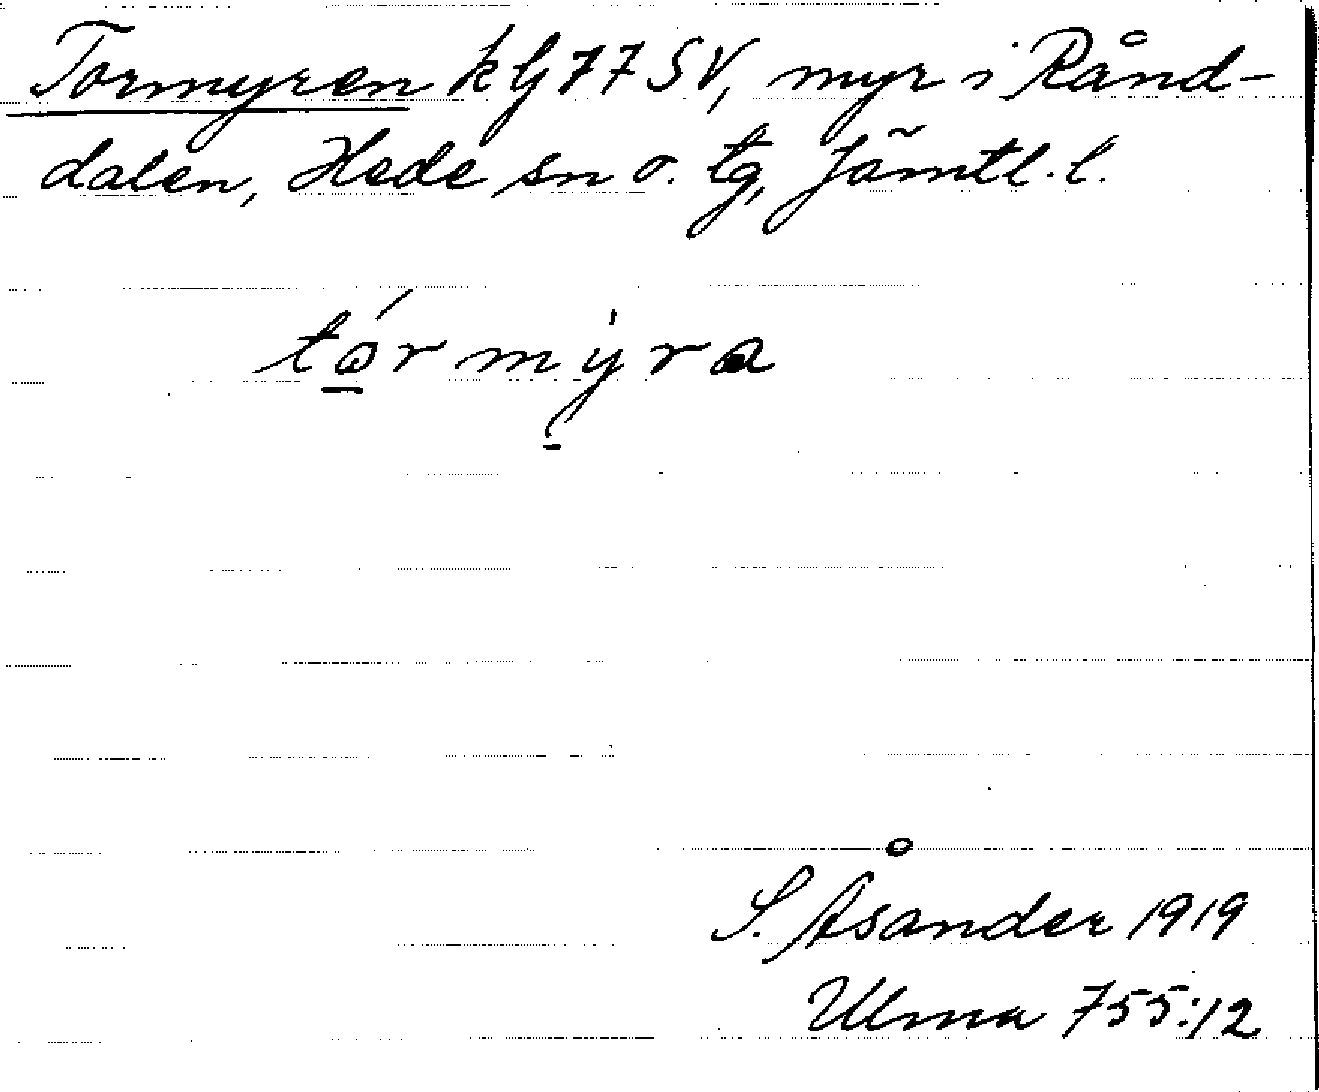 Tormyren kbl 77 SV, myr i Rånd-
dalen, Hede sn o. tg, Jämtl. l.
tórmýra
S. Åsander 1919
Ulma 755:12